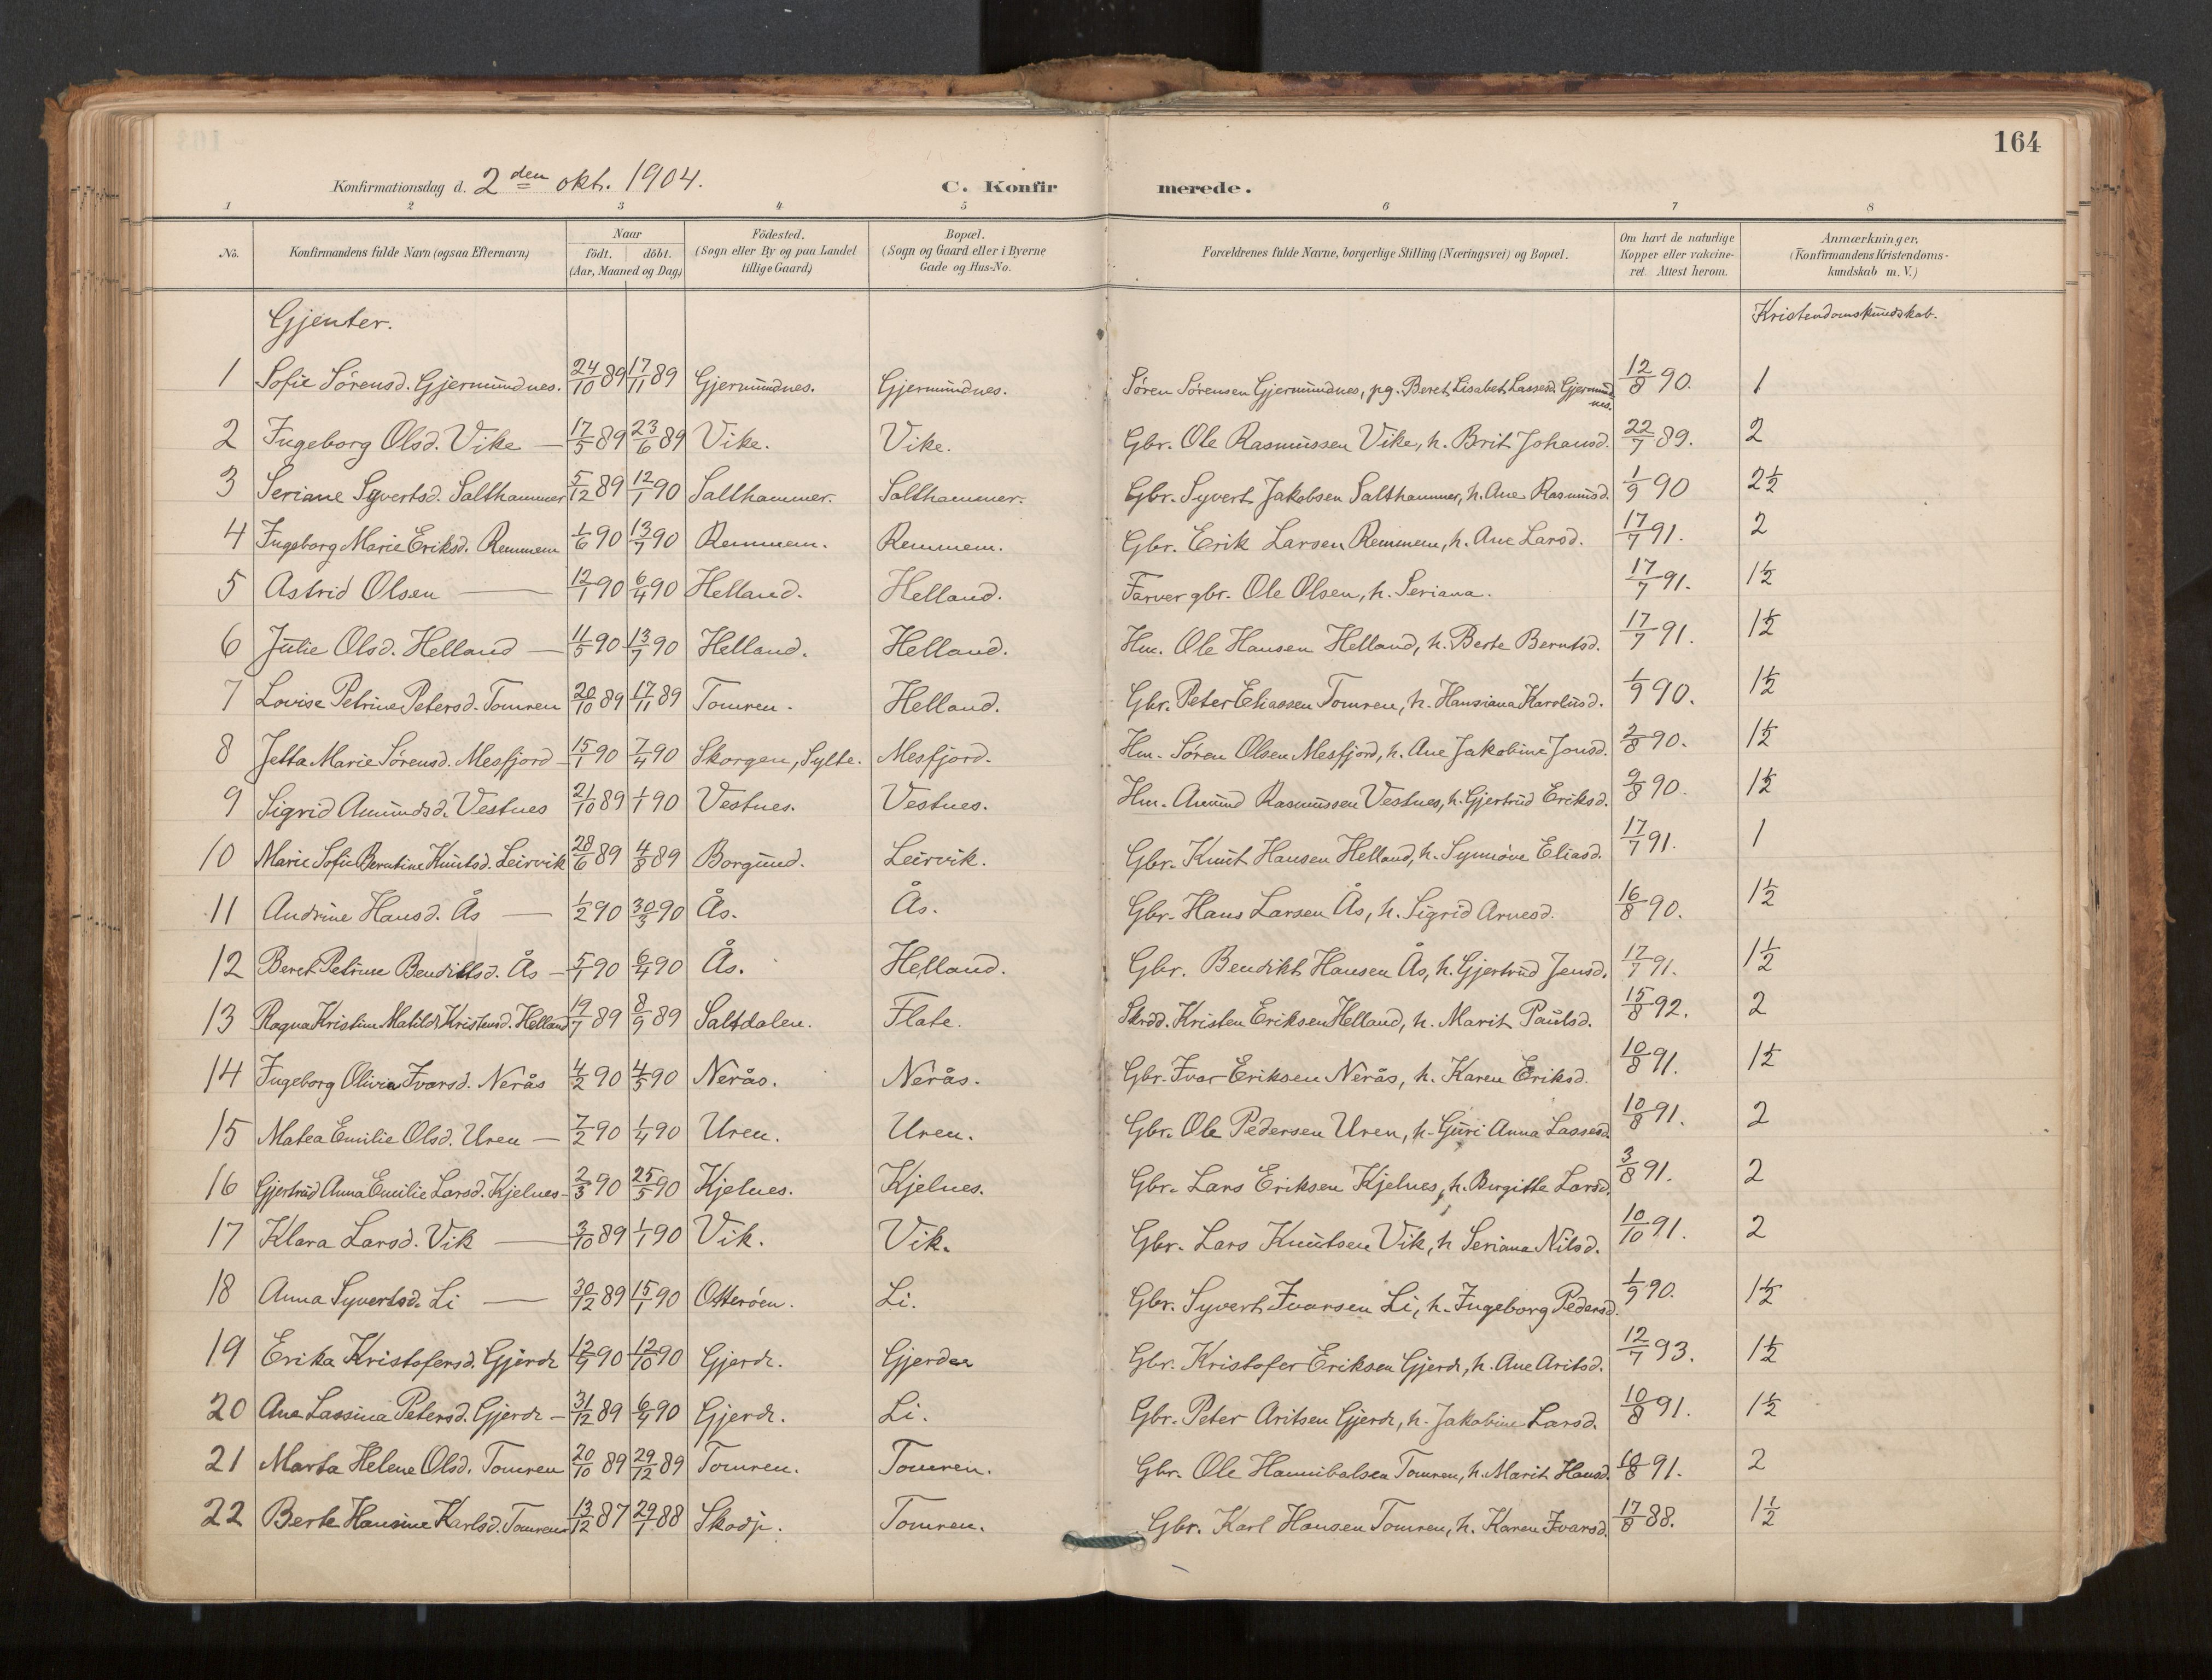 164
Konfirmationsdag d. 2den okt. 1904. C. Konfirmerede.
1 2 3 4 5 6 7 8
No. Konfirmandens fulde Navn (ogsaa Efternavn) Naar født. døbt. (Aar, Maaned og Dag) Födested. (Sogn eller By og paa Landet tillige Gaard) Bopæl. (Sogn og Gaard eller i Byerne Gade og Hus-No. Forældrenes fulde Navne, borgerlige Stilling (Næringsvei) og Bopæl. Om havt de naturlige Kopper eller vakcineret. Attest herom. Anmærkninger, (Konfirmandens Kristendomskundskab m. V.)
Gjenter. Kristendomskundskab.
1 Sofie Sørensd. Gjermundnes. 24/10 89 17/11 89 Gjermundnes. Gjermundnes. Søren Sørensen Gjermundnes, pg. Beret Lisabet Lassesd. Gjermundnes. 12/8 90. 1
2 Ingeborg Olsd. Vike — 17/5 89 23/6 89 Vike. Vike. Gbr. Ole Rasmussen Vike, h. Brit Johansd. 22/7 89. 2
3 Seriane Syvertsd. Salthammer 5/12 89 12/1 90 Salthammer. Salthammer. Gbr. Syvert Jakobsen Salthammer, h. Ane Rasmusd. 1/9 90 2½
4 Ingeborg Marie Eriksd. Remmem 1/6 90 13/7 90 Remmem. Remmem. Gbr. Erik Larsen Remmem, h. Ane Larsd. 17/7 91. 2
5 Astrid Olsen — 12/1 90 6/4 90 Helland. Helland. Farver gbr. Ole Olsen, h. Seriana. 17/7 91. 1½
6 Julie Olsd. Helland — 11/5 90 13/7 90 Helland. Helland. Hm. Ole Hansen Helland, h. Berte Berntsd. 17/7 91. 1½
7 Lovise Petrine Petersd. Tomren 20/10 89 17/11 89 Tomren. Helland. Gbr. Peter Eliassen Tomren, h. Hansiana Karolusd. 1/9 90. 1½
8 Jetta Marie Sørensd. Mesfjord — 15/1 90 7/4 90 Skorgen, Sylte. Mesfjord. Hm. Søren Olsen Mesfjord, h. Ane Jakobine Jonsd. 2/8 90. 1½
9 Sigrid Amundsd. Vestnes 21/10 89 1/1 90 Vestnes. Vestnes. Hm. Amund Rasmussen Vestnes, h. Gjertrud Eriksd. 2/8 90. 1½
10 Marie Sofie Berntine Knutsd. Leirvik 28/6 89 4/8 89 Borgund. Leirvik. Gbr. Knut Hansen Helland, h. Synnøve Eliasd. 17/7 91. 1
11 Andrine Hansd. Ås — 1/2 90 30/3 90 Ås. Ås. Gbr. Hans Larsen Ås, h. Sigrid Arnesd. 16/8 90. 1½
12 Beret Petrine Bendiktsd. Ås — 5/1 90 6/4 90 Ås. Helland. Gbr. Bendikt Hansen Ås, h. Gjertrud Jensd. 17/7 91. 1½
13 Ragna Kristine Matilde Kristensd. Helland 19/7 89 8/9 89 Saltdalen. Flate. Skrdd. Kristen Eriksen Helland, h. Marit Paulsd. 15/8 92. 2
14 Ingeborg Olivia Ivarsd. Nerås 4/2 90 4/5 90 Nerås. Nerås. Gbr. Ivar Eriksen Nerås, h. Karen Eriksd. 10/8 91. 1½
15 Matea Emilie Olsd. Uren — 7/2 90 1/4 90 Uren. Uren. Gbr. Ole Pedersen Uren, h. Guri Anna Lassesd. 10/8 91. 2
16 Gjertrud Anna Emilie Larsd. Kjelnes — 2/3 90 25/5 90 Kjelnes. Kjelnes. Gbr. Lars Eriksen Kjelnes, h. Birgitte Larsd. 3/8 91. 2
17 Klara Larsd. Vik — 3/10 89 1/1 90 Vik. Vik. Gbr. Lars Knutsen Vik, h Seriana Nilsd. 10/10 91. 2
18 Anna Syvertsd. Li — 30/12 89 15/1 90 Otterøen. Li. Gbr. Syvert Ivarsen Li, h. Ingeborg Pedersd. 1/9 90. 1½
19 Erika Kristofersd. Gjerde 12/9 90 12/10 90 Gjerde. Gjerde Gbr. Kristofer Eriksen Gjerde, h. Ane Aritsd. 12/7 93. 1½
20 Ane Lassina Petersd. Gjerde — 31/12 89 6/4 90 Gjerde. Li. Gbr. Peter Aritsen Gjerde, h. Jakobine Larsd. 10/8 91. 1½
21 Marta Helene Olsd. Tomren 20/10 89 29/12 89 Tomren. Tomren. Gbr. Ole Hannibalsen Tomren, h. Marit Hansd. 10/8 91. 2
22 Berte Hansine Karlsd. Tomren 13/12 87 29/1 88 Skodje. Tomren. Gbr. Karl Hansen Tomren, h. Karen Ivarsd. 17/8 88. 1½